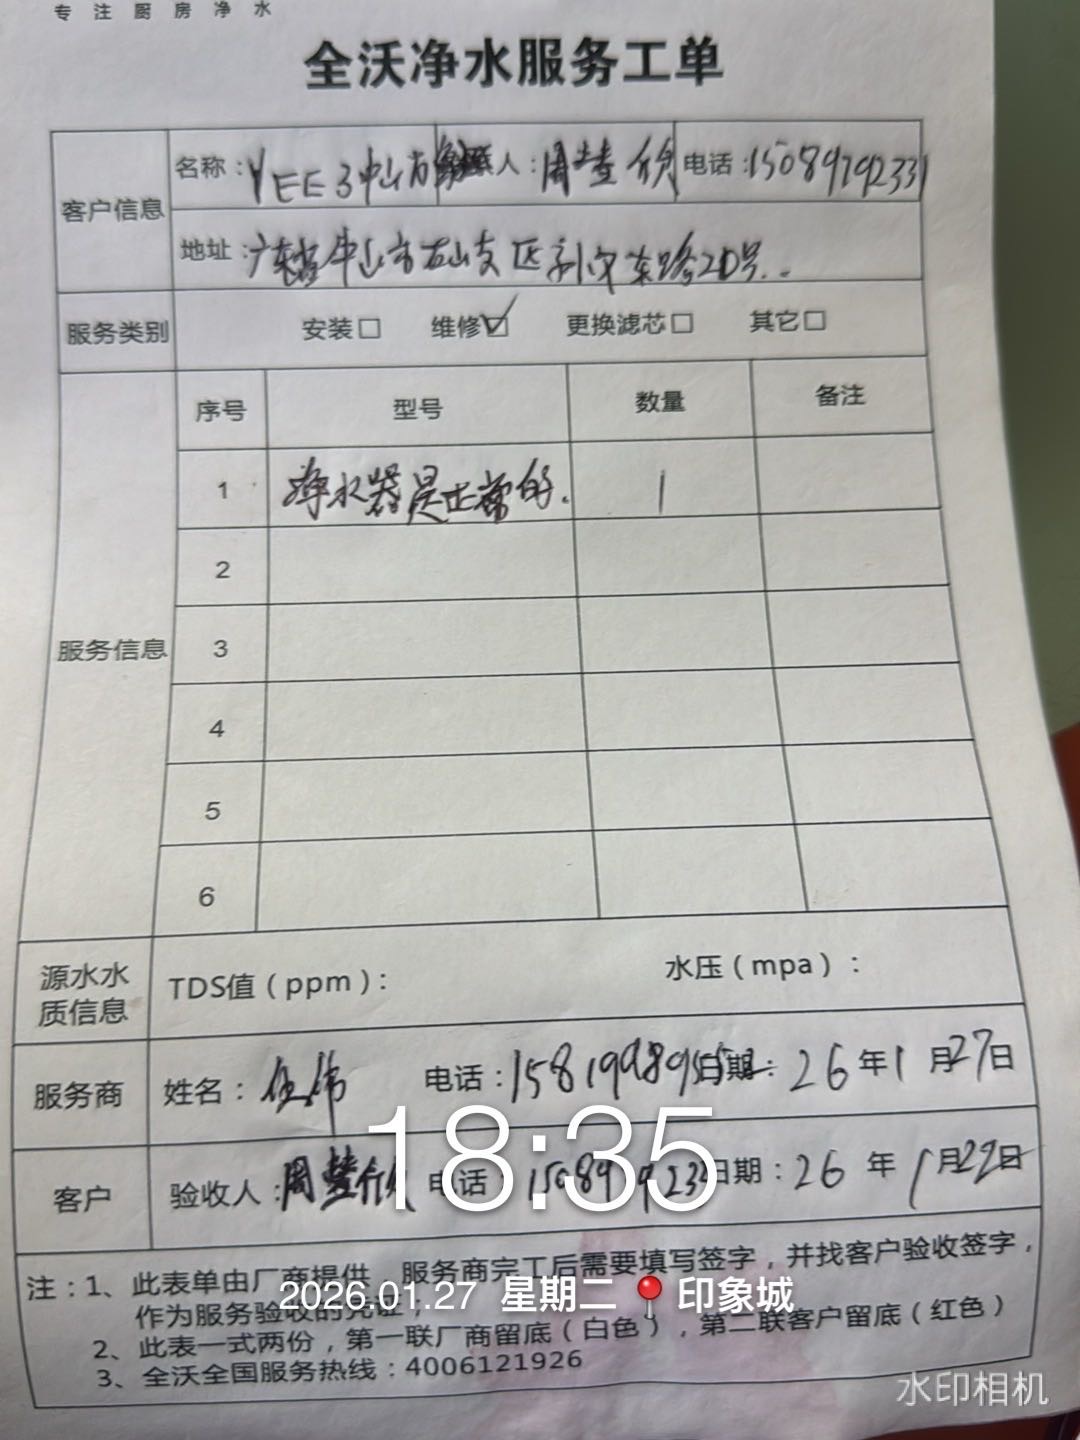 专注厨房净水
全沃净水服务工单
客户信息
名称：YEE3中山市 人：周 电话：15089292331
地址：广东省中山市石山支区 东路20号
服务类别 安装□ 维修☑ 更换滤芯□ 其它□
服务信息 序号 型号 数量 备注
1 净水器是正常的. 1
2
3
4
5
6
源水水质信息 TDS值（ppm）： 水压（mpa）：
服务商 姓名：伍伟 电话：158199895 日期：26年1月27日
18:35
客户 验收人：周 电话 日期：26年1月 日
注：1、此表单由厂商提供，服务商完工后需要填写签字，并找客户验收签字，
作为服务验收的凭证；
2026.01.27 星期二 印象城
2、此表一式两份，第一联厂商留底（白色），第二联客户留底（红色）
3、全沃全国服务热线：4006121926
水印相机